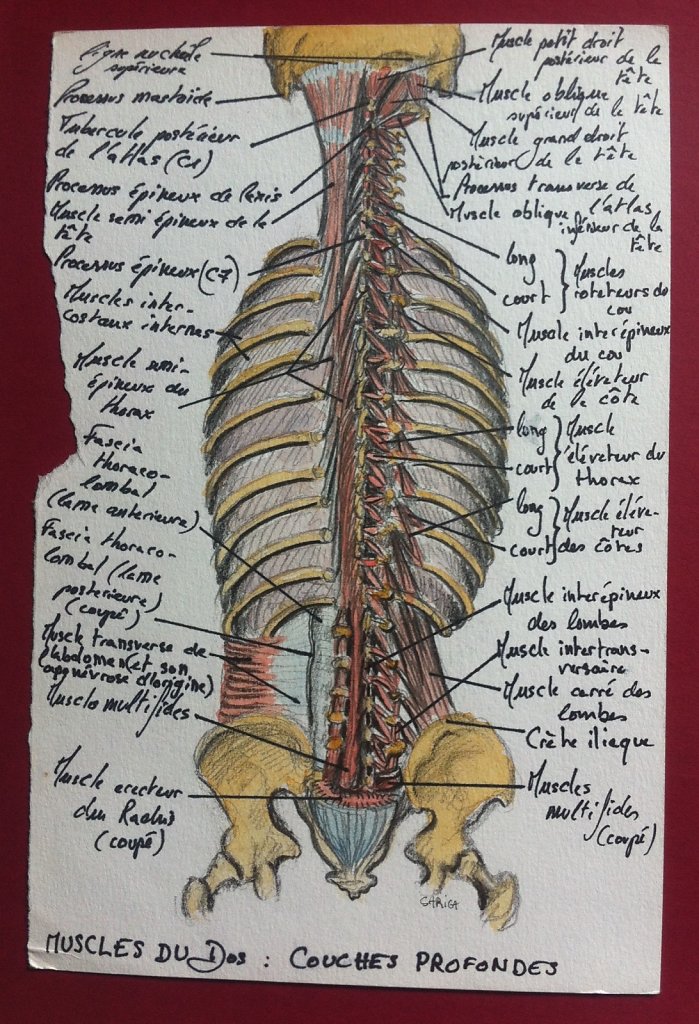 ligne nuchale
supérieure
Processus mastoïde
Tubercule postérieur
de l'atlas (C1)
Processus épineux de l'axis
Muscle semi épineux de la
tête
Processus épineux (C7)
Muscles inter-
costaux internes
Muscle semi-
épineux du
thorax
Fascia
thoraco-
lombal
(lame anterieure)
Fascia thoraco-
lombal (lame
posterieure)
(coupé)
Muscle transverse de
l'abdomen (et son
aponévrose d'origine)
Muscles multifides
Muscle erecteur
du Rachis
(coupé)
Muscle petit droit
postérieur de la
tête
Muscle oblique
supérieur de la tête
Muscle grand droit
postérieur de la tête
Processus transverse de
l'atlas
Muscle oblique
inférieur de la
tête
long
court
Muscles
rotateurs du
cou
Muscle interépineux
du cou
Muscle élévateur
de la côte
long
court
Muscle
élévateur du
thorax
long
court
Muscle éléva-
teur
des côtes
Muscle interépineux
des lombes
Muscle intertrans-
versaire
Muscle carré des
lombes
Crète iliaque
Muscles
multifides
(coupé)
SARIGA
MUSCLES DU DOS : COUCHES PROFONDES